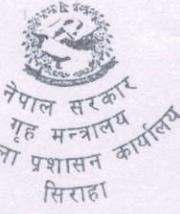 नेपाल सरकार
गृह मन्त्रालय
ला प्रशासन कार्यालय
सिराहा